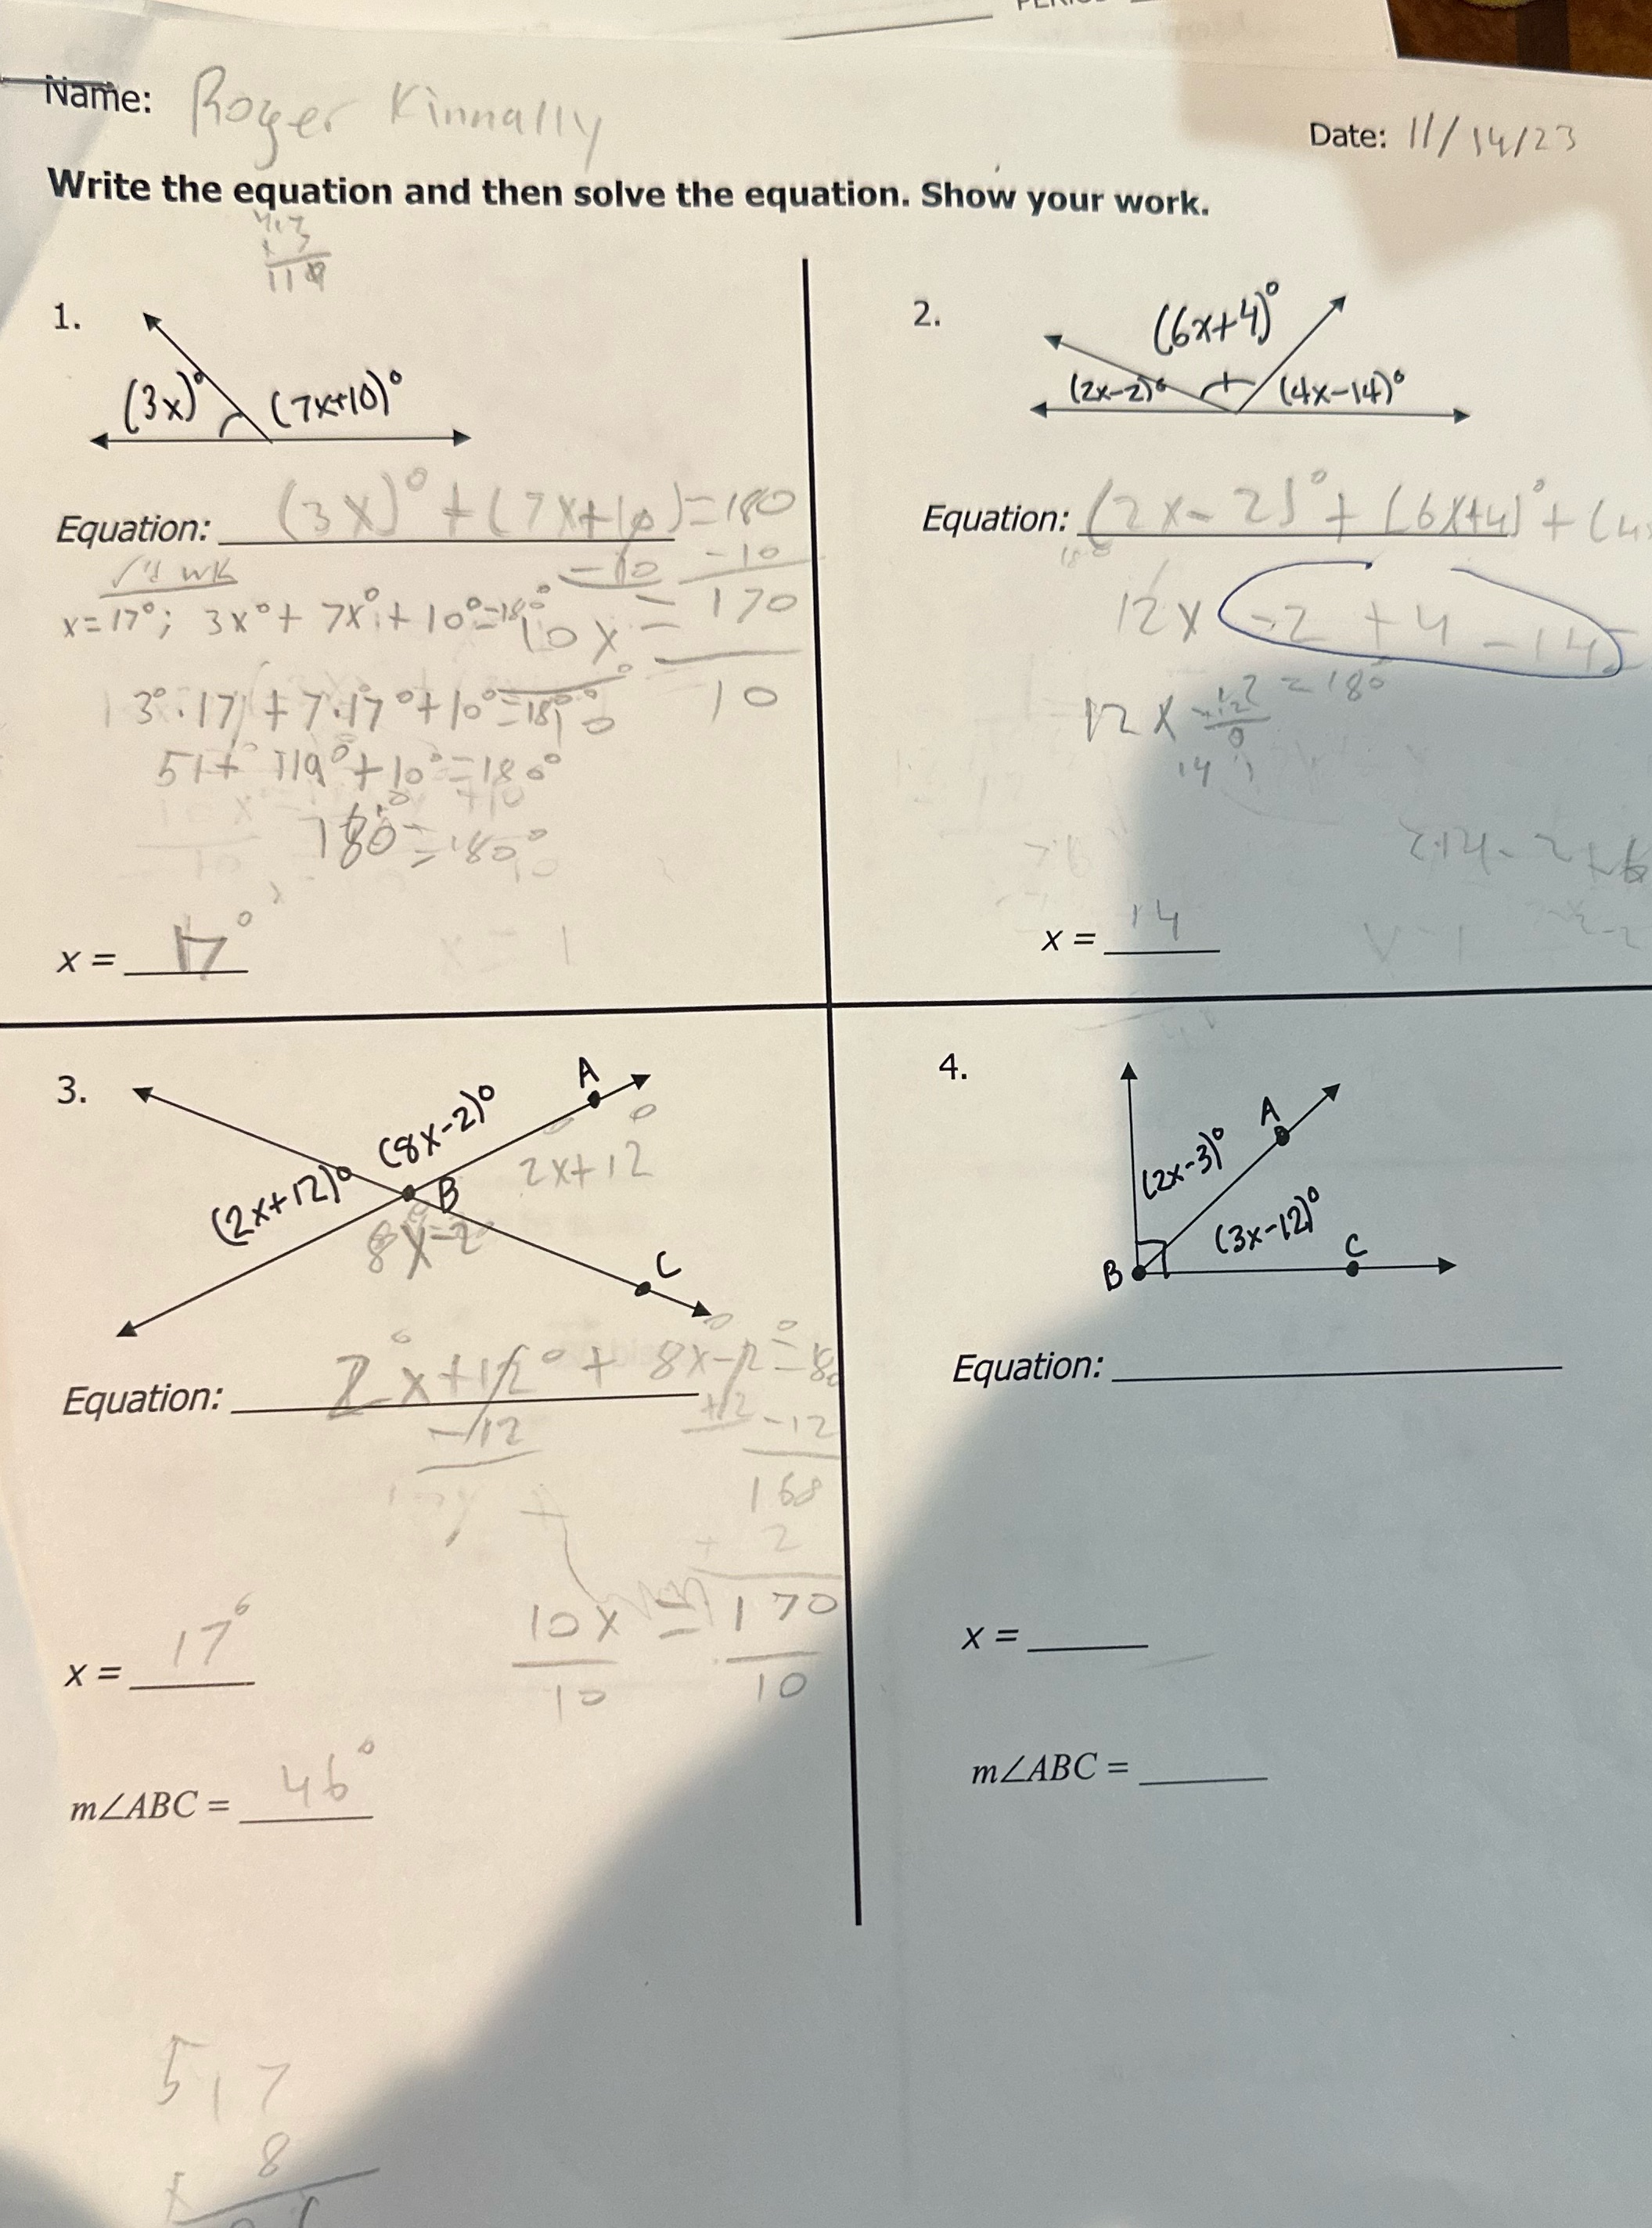 Name: Roger Kinnally
Date: 11/14/23
Write the equation and then solve the equation. Show your work.
1.
(3x)° (7x+10)°
Equation: (3x)° + (7x+10)=180
-10 -10
√'d wk
x=17°; 3x° + 7x° + 10°=180°
10x = 170
10
3°.17 + 7.17° + 10°=180°
51+ 119° + 10°=180°
180°=180°
x = 17°
2.
(6x+4)°
(2x-2)° (4x-14)°
Equation: (2x-2)° + (6x+4)° + (4x
12x -2 + 4 - 14
12x = 180
14
x = 14
3.
A
(8x-2)°
(2x+12)° B 2x+12
8x-2
C
Equation: 2x+12° + 8x-2=180
-12 +2 -12
168
+ 2
10x = 170
10 10
x = 17°
m∠ABC = 46°
4.
A
(2x-3)°
(3x-12)°
B C
Equation:
x =
m∠ABC =
517
8